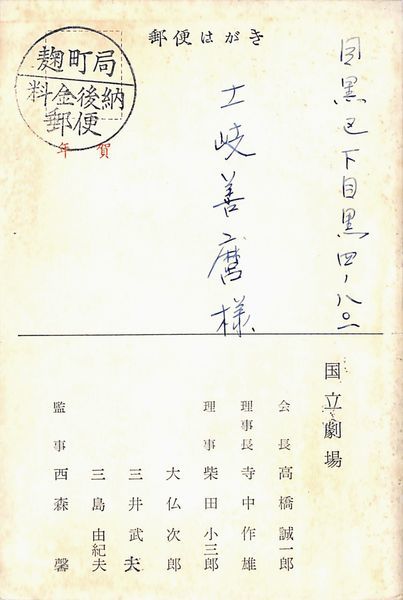 郵便はがき
麹町局
料金後納
郵便
年賀
目黒区下目黒四ノ八〇一
土岐善麿様
国立劇場
会長 高橋誠一郎
理事長 寺中作雄
理事 柴田小三郎
大仏次郎
三井武夫
三島由紀夫
監事 西森馨